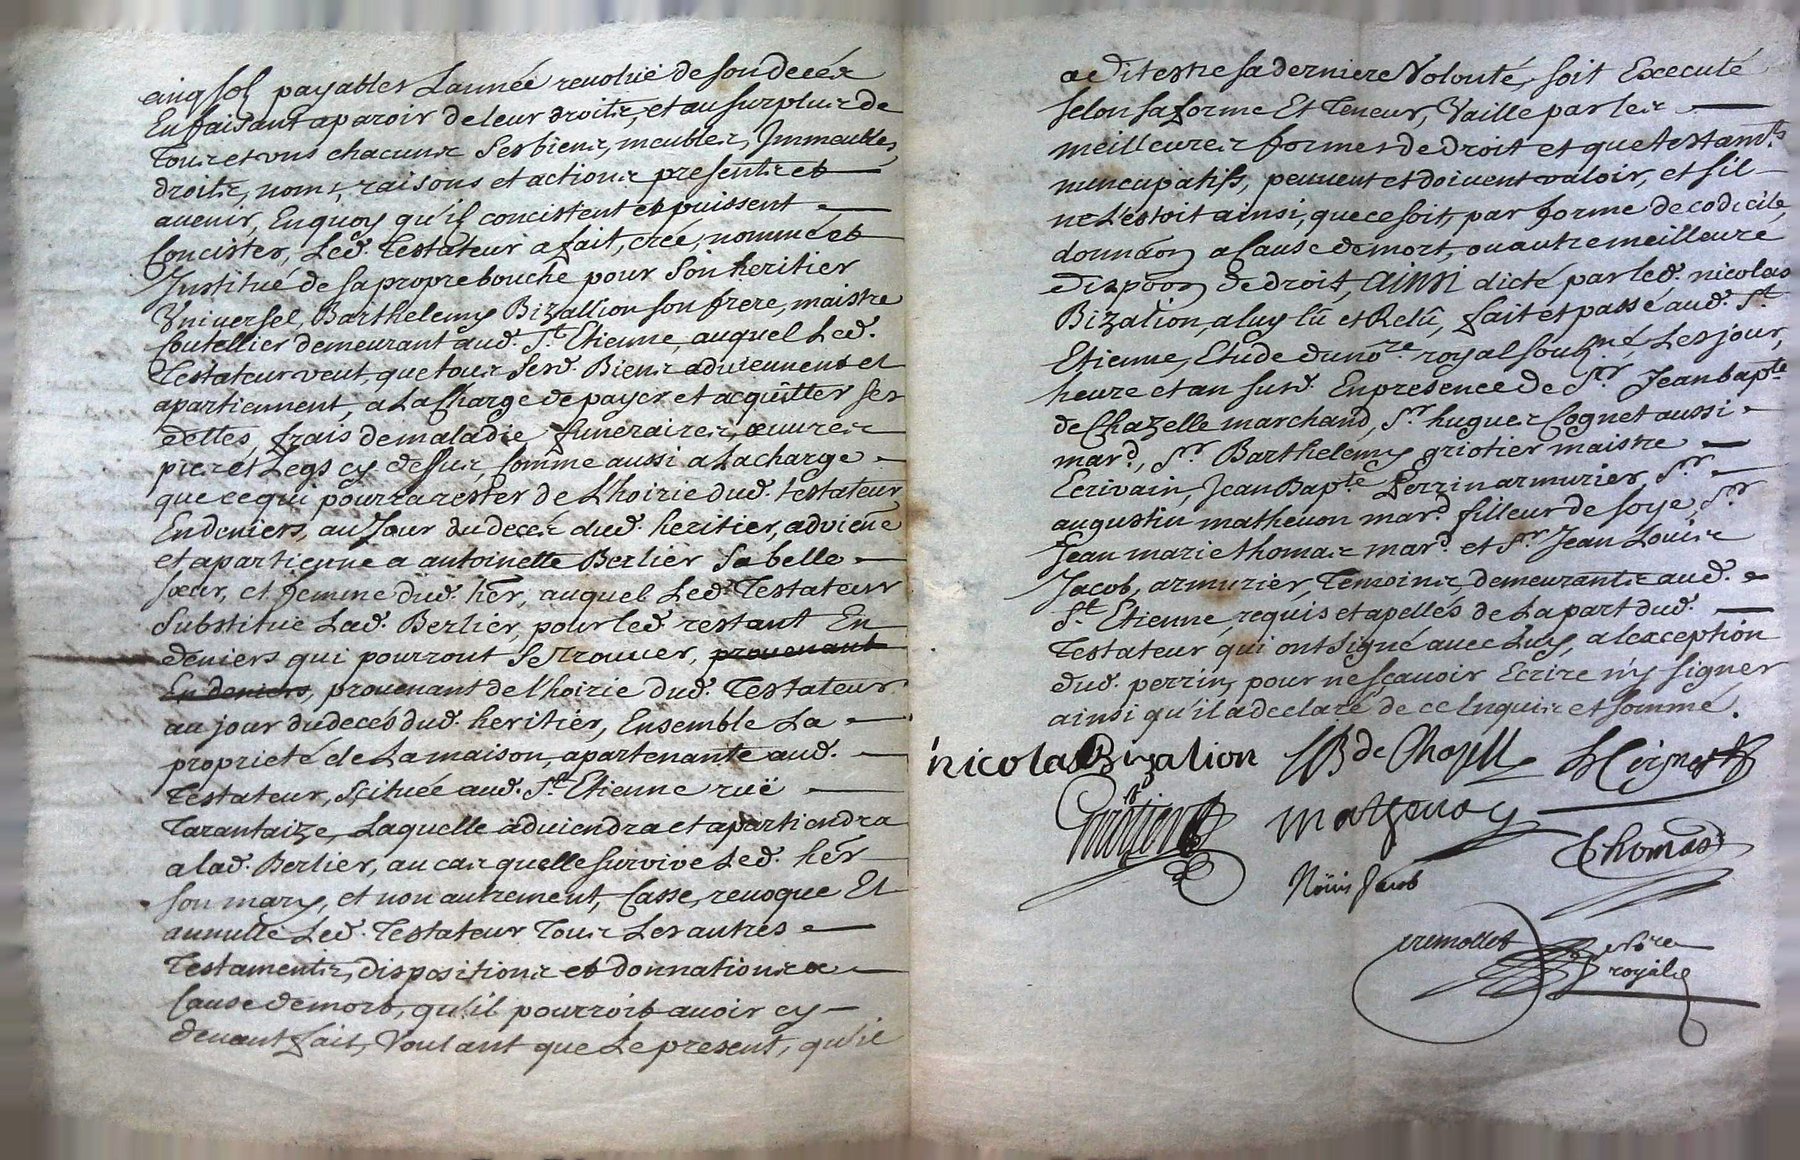 cinq sol payables Lannée revoluë de son decés
En faisant aparoir de leur droits, et au surplus de
Tous et uns chacuns ses biens, meubles, Immeubles,
droits, noms, raisons et actions presents et
avenir, En quoy qu'il concistent et puissent
Concister, Led. Testateur a fait, créé, nommé et
Institué de sa propre bouche pour son heritier
Universel, Barthelemy Bizallion son frere, maistre
Coutellier demeurant aud. St. Etienne, auquel Led.
Testateur veut, que tous sesd. Biens adviennent et
apartiennent, a La Charge de payer et acquitter ses
dettes, frais de maladie funéraires, œuvres
pies et Legs cy dessus, Comme aussi a La charge
que ce qui pourra rester de L'hoirie dud. testateur
En deniers, au Jour du decés dud. heritier, adviene
et apartienne a antoinette Berlier sa belle
sœur, et femme dud. hér, auquel Led. Testateur
Substitue Lad. Berlier, pour led. restant En
deniers qui pourront se trouver, provenant
En deniers, provenant de l'hoirie dud. Testateur
au jour du decés dud. heritier, Ensemble La
proprieté de La maison, apartenante aud.
Testateur, Scituée aud. St. Etienne ruë
Tarantaize, Laquelle adviendra et apartiendra
a lad. Berlier, au cas quelle survive Led. hér
son mary, et non autrement, Casse, revoque Et
annulle Led. Testateur Tous Les autres
Testaments, dispositions et donnations a
Cause de mort, qu'il pourroit avoir cy
devant fait, Voulant que Le present, qu'il
a dit estre sa derniere Volonté, soit Executé
selon sa forme Et Teneur, Vaille par les
meilleures formes de droit et que testamts.
nuncupatifs, peuvent et doivent valoir, et sil
ne L'estoit ainsi, que ce soit, par forme de codicile,
donnaon a Cause de mort, ou autre meilleure
dispoon de droit, ainsi dicté par led. nicolas
Bizalion, a luy lû et Relû, fait et passé aud. St.
Etienne, Etude du nore. royal sousné, Les jour,
heure et an susd. En presence de Sr. Jean bapte
de Chazelle marchand, Sr. hugues Cognet aussi
mard, Sr. Barthelemy griotier maistre
Ecrivain, Jean Bapte Perrin armurier, Sr.
augustin mathevon mard. filleur de soye, Sr
Jean marie thomas mard. et Sr Jean Louis
Jacob, armurier, Temoins, demeurants aud.
St. Etienne, requis et apellés de La part dud.
Testateur qui ont signé avec Luy, a lexception
dud. perrin, pour ne sçavoir Ecrire ny signer
ainsi qu'il a declaré de ce Enquis et sommé.
nicolas Bizalion
JB de Chazelle
H Cognet
Griotier
mathevon
Thomas
Louis Jacob
nore
royal